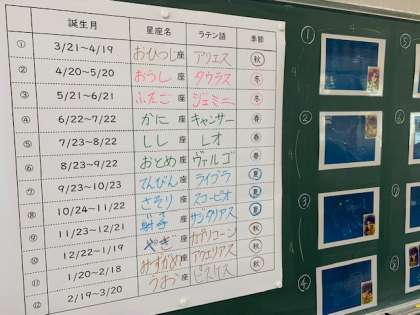 誕生月 星座名 ラテン語 季節
① 3/21～4/19 おひつじ座 アリエス 秋
② 4/20～5/20 おうし座 タウラス 冬
③ 5/21～6/21 ふたご座 ジェミニ 冬
④ 6/22～7/22 かに座 キャンサー 春
⑤ 7/23～8/22 しし座 レオ 春
⑥ 8/23～9/22 おとめ座 ヴァルゴ 春
⑦ 9/23～10/23 てんびん座 ライブラ 夏
⑧ 10/24～11/22 さそり座 スコーピオ 夏
⑨ 11/23～12/21 射手座 サジタリアス 夏
⑩ 12/22～1/19 やぎ座 カプリコーン 秋
⑪ 1/20～2/18 みずがめ座 アクエリアス 秋
⑫ 2/19～3/20 うお座 ピスケス 秋
①
②
③
④
⑤